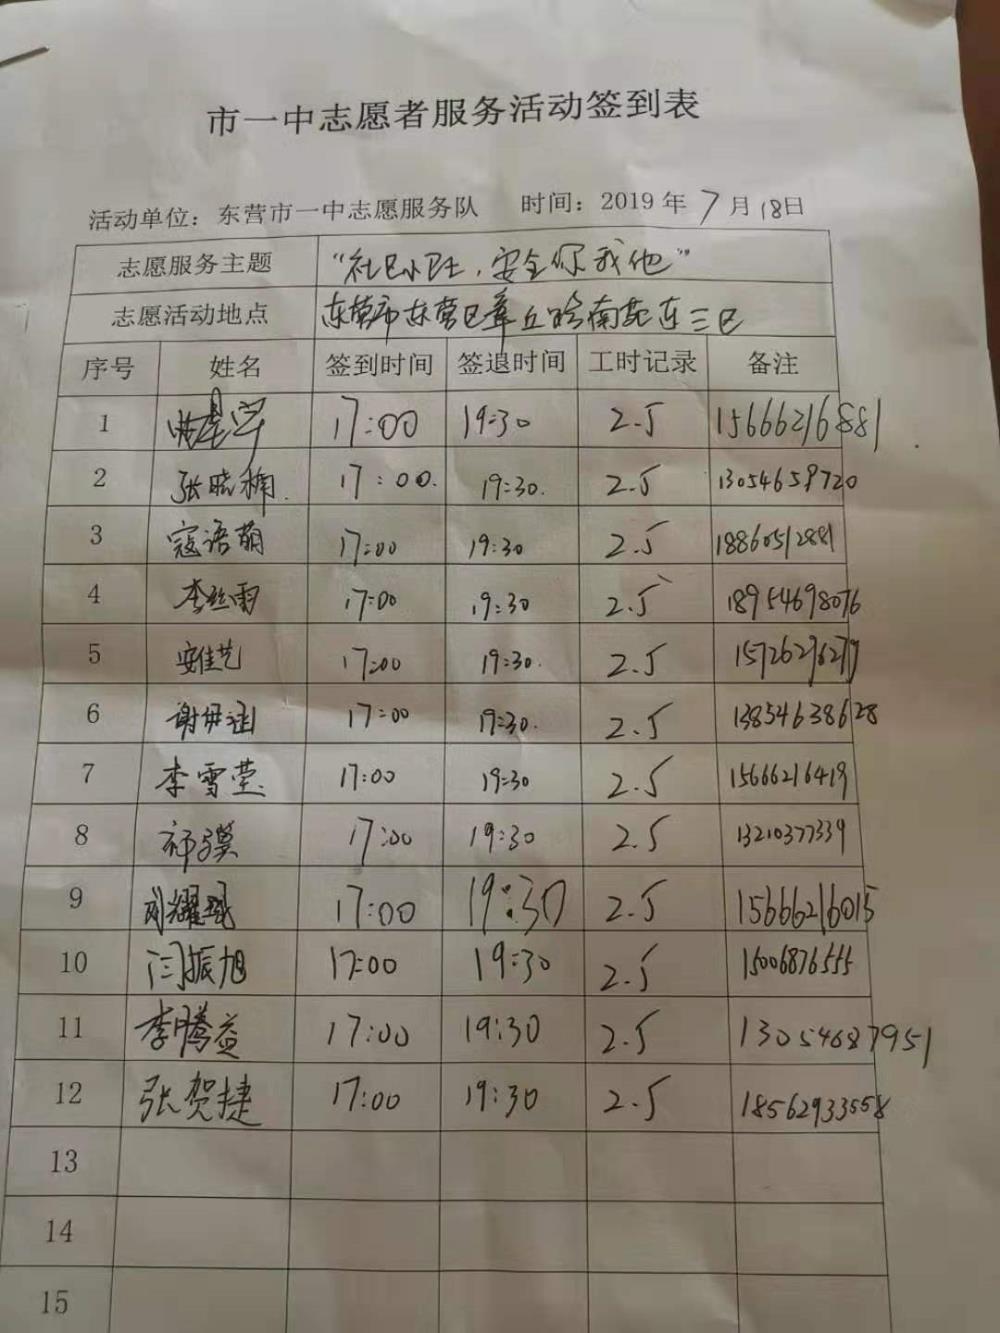 市一中志愿者服务活动签到表
活动单位：东营市一中志愿服务队 时间：2019年7月18日
志愿服务主题 “社区小卫士，安全你我他”
志愿活动地点 东营市东营区辛店街南苑东三区
序号 姓名 签到时间 签退时间 工时记录 备注
1 17:00 19:30 2.5 15666216881
2 张晓楠 17:00 19:30 2.5 13054658720
3 寇语萌 17:00 19:30 2.5 18860512881
4 李丝雨 17:00 19:30 2.5 18954698076
5 安佳艺 17:00 19:30 2.5 15726276279
6 谢伊涵 17:00 19:30 2.5 13854638628
7 李雪莹 17:00 19:30 2.5 15666216419
8 17:00 19:30 2.5 13210377339
9 17:00 19:30 2.5 15666216015
10 闫振旭 17:00 19:30 2.5 15006876555
11 李腾益 17:00 19:30 2.5 13054687951
12 张贺捷 17:00 19:30 2.5 18562933558
13
14
15